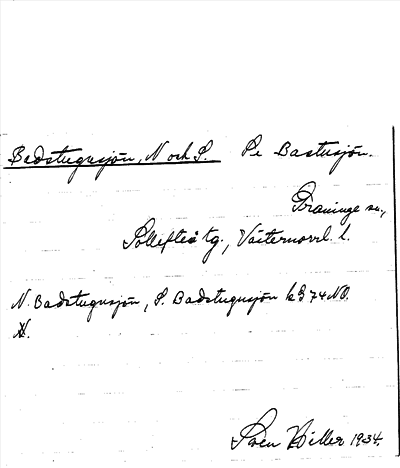 Badstugusjön, N och S. Se Bastusjön.
Graninge sn.,
Sollefteå tg., Västernorrl. l.
N. Badstugusjön, S. Badstugusjön kg 74 NO.
N.
Sven 1934.